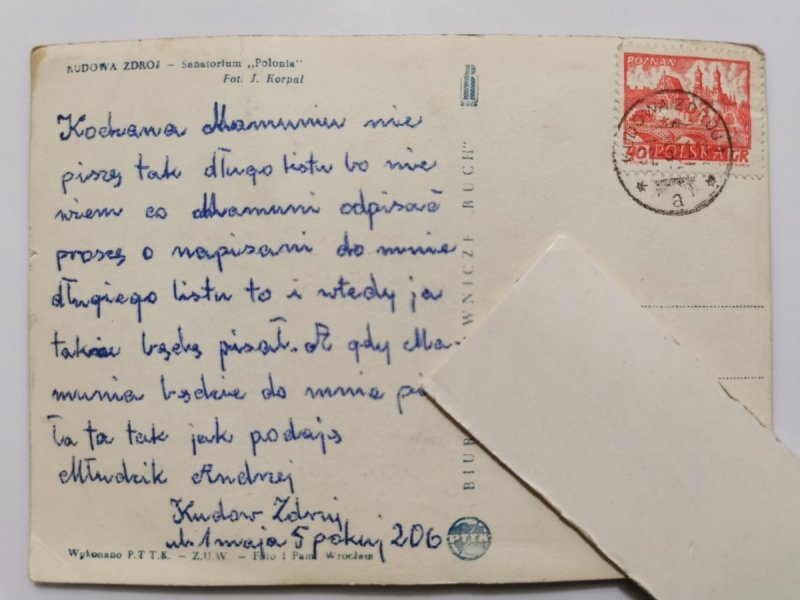 KUDOWA ZDRÓJ – Sanatorium „Polonia"
Fot. J. Korpal
Kochana Mamuniu nie
piszę tak długo listu bo nie
wiem co Mamuni odpisać
proszę o napisani do mnie
długiego listu to i wtedy ja
takie będę pisał. A gdy Ma-
munia będzie do mnie pi
ła to tak jak podaję
Młudzik Andrzej
Kudow Zdruj
ul. 1 maja 5 pokuj 206
Wykonano P.T.T.K. – Z.U.W. – Foto i Pam. Wrocław
PTTK
BIUR WNICZE RUCH"
POZNAŃ
40 POLSKA GR
a